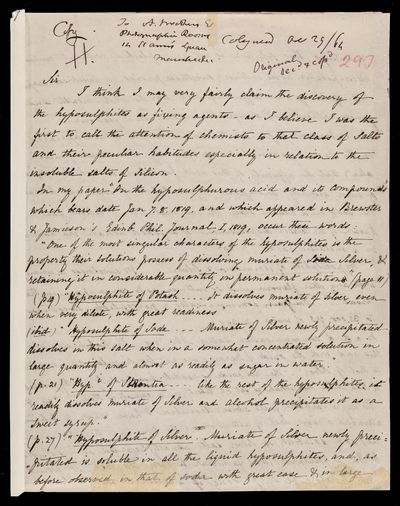 Copy. To A. Brothers E
Photographic Rooms
14 St Anns Square
Manchester
Collingwood Oct 29/64
Original recd & copd 297
Sir
I think I may very fairly claim the discovery of
the hyposulphites as fixing agents - as I believe I was the
first to call the attention of chemists to that class of Salts
and their peculiar habitudes especially in relation to the
insoluble salts of Silver.
In my paper "On the hyposulphurous acid and its compounds
which bears date Jan 7. 8. 1819, and which appeared in Brewster
& Jamieson's Edinb. Phil. Journal I, 1819, occur these words:
"One of the most singular characters of the hyposulphites is the
property their solutions possess of dissolving muriate of Silver, &
retaining it in considerable quantity in permanent solution" (page 11)
(p.19) "Hyposulphite of Potash .... It dissolves muriate of silver, even
when very dilute, with great readiness
(ibid) "Hyposulphite of Soda ---- Muriate of Silver newly precipitated
dissolves in this salt when in a somewhat concentrated solution in
large quantity and almost as readily as sugar in water
(p. 21) "Hyp. of Strontia .... like the rest of the hyposulphites, it
readily dissolves muriate of Silver and alcohol precipitates it as a
Sweet syrup.
(p. 27) "Hyposulphite of Silver - Muriate of Silver newly preci-
-pitated is soluble in all the liquid hyposulphites, and, as
before observed in that of soda with great ease & in large